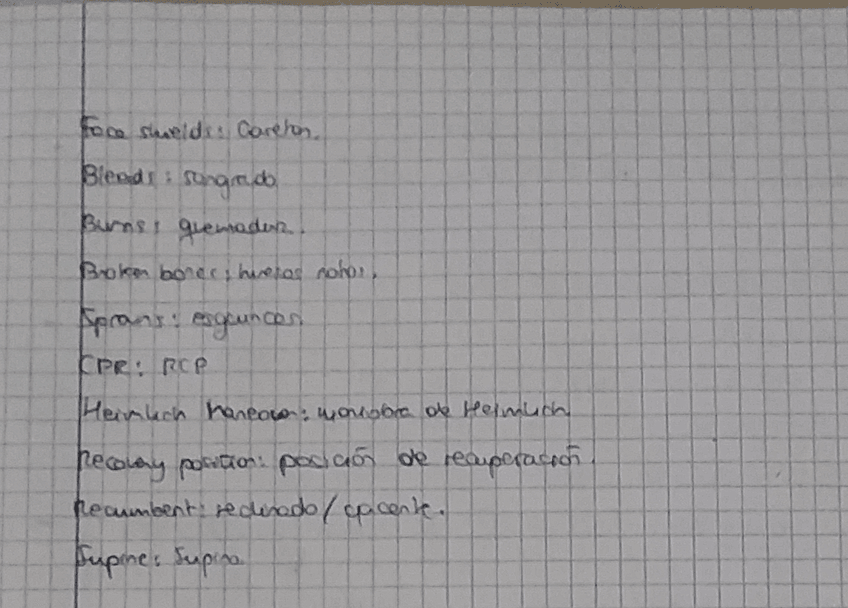 Face shields: Caretas.
Bleeds: sangrado
Burns: quemadura.
Broken bones: huesos rotos.
Sprans: esguinces.
CPR: RCP
Heimlich maneover: maniobra de Heimlich.
Recovery position: posición de recuperación.
Recumbent: reclinado/yacente.
Supine: Supino